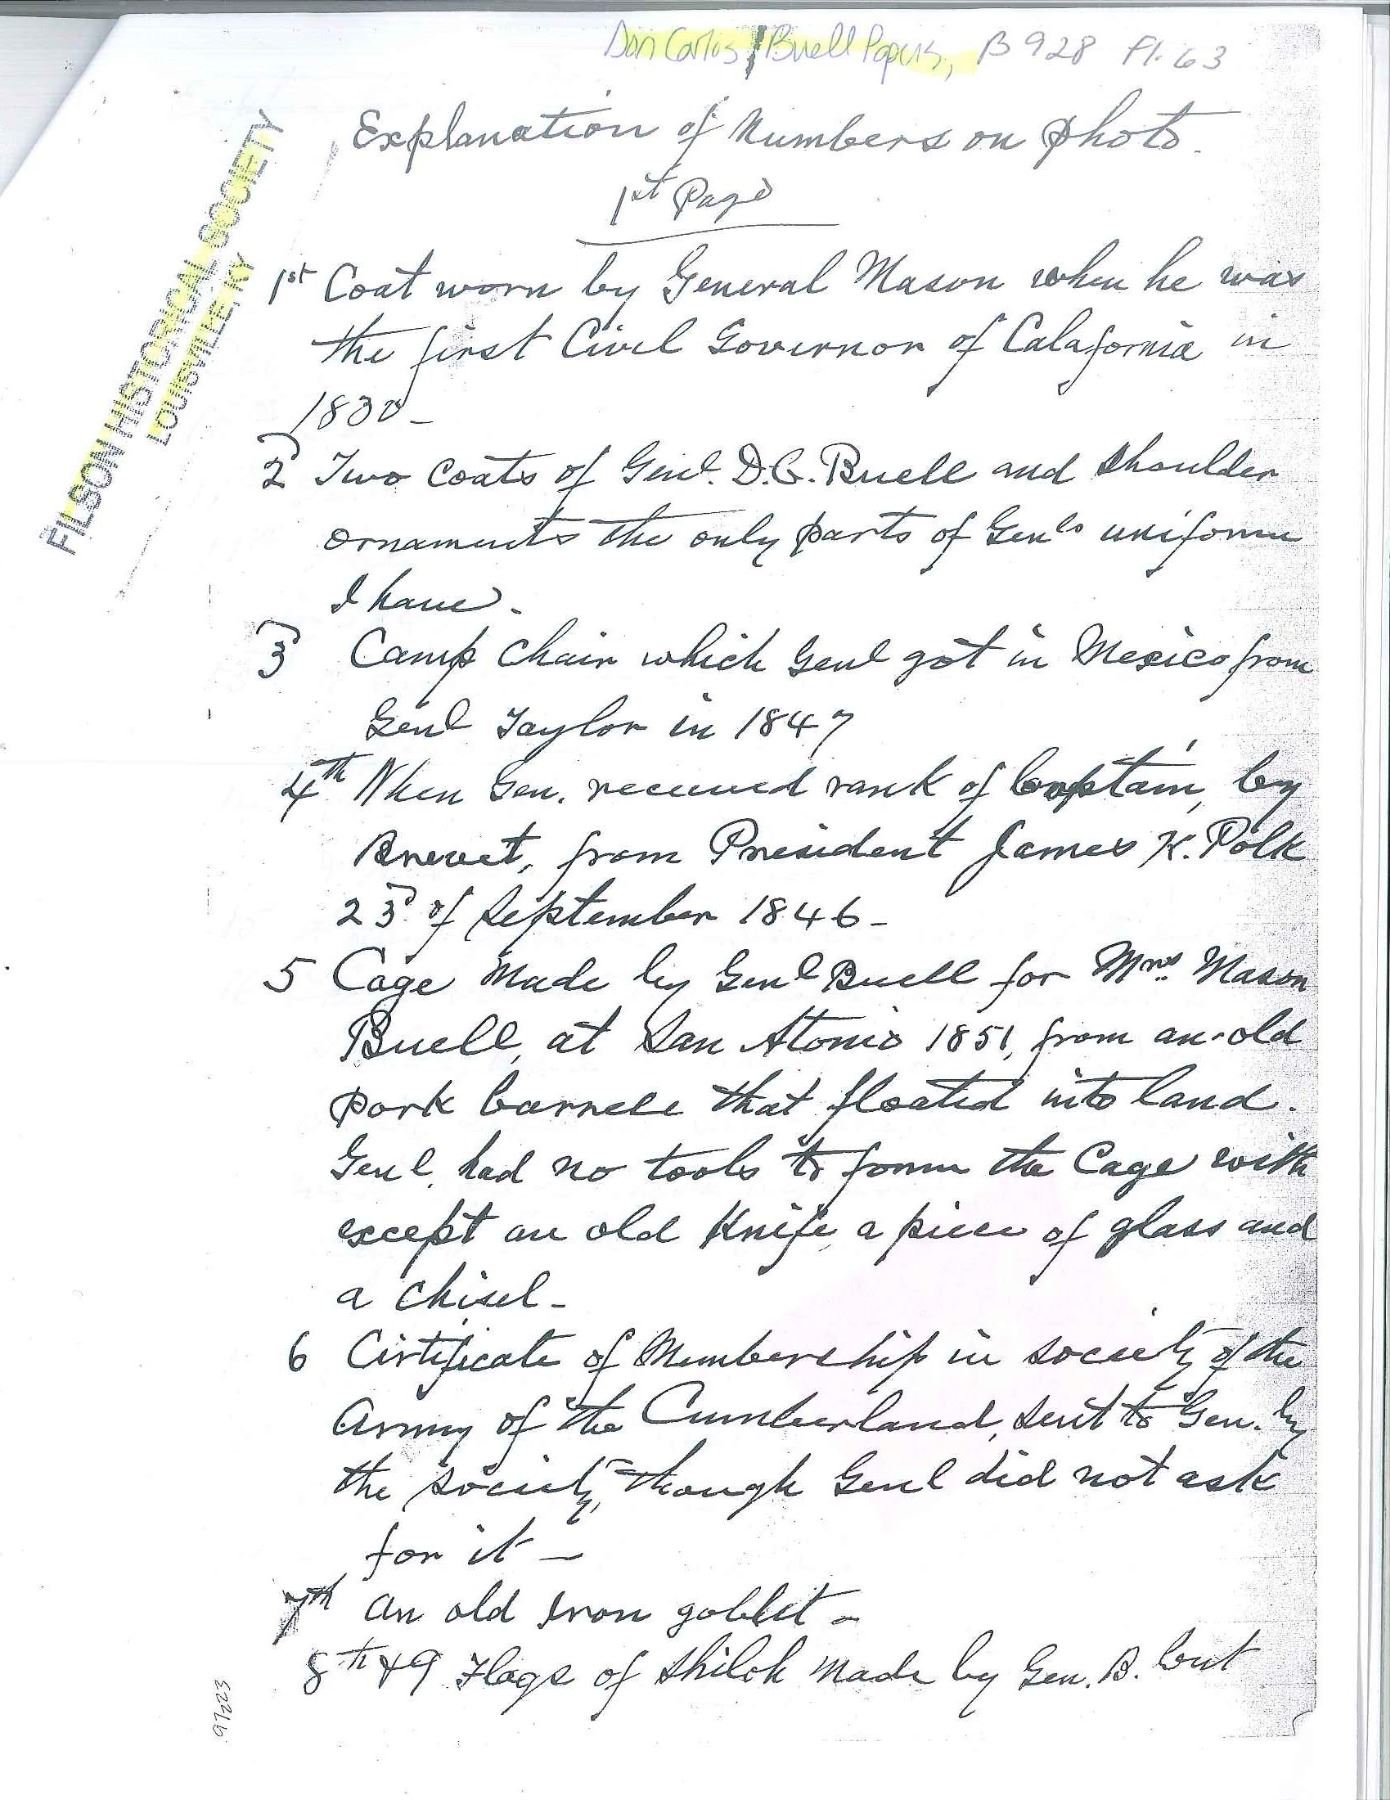 Don Carlos Buell Papers, B928 Fl. 63
FILSON HISTORICAL SOCIETY
LOUISVILLE KY
Explanation of Numbers on Photo.
1st Page
1st Coat worn by General Mason when he was
the first Civil Governor of Calafornia in
1830-
2 Two Coats of Genl. D.C. Buell and Shoulder
ornaments the only parts of Genls uniform
I have.
3 Camp Chair which Genl got in Mexico from
Genl Taylor in 1847
4th When Gen. received rank of Captain, by
Brevet, from President James K. Polk
23d of September 1846-
5 Cage Made by Genl Buell for Mrs. Mason
Buell, at San Atonio 1851, from an-old
Pork barrell that floated into land.
Genl. had no tools to form the Cage with
except an old Knife, a piece of glass and
a Chisel-
6 Cirtificate of Membership in Society of the
Army of the Cumberland, sent to Gen. by
the Society, though Genl did not ask
for it-
7th An old Iron goblet-
8th &9 Flags of Shiloh Made by Gen. B. but
97223